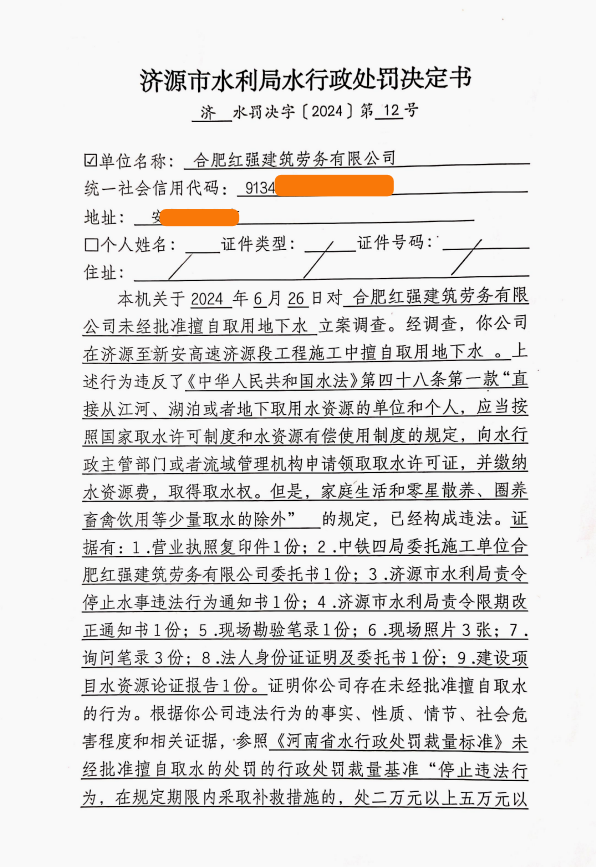 济源市水利局水行政处罚决定书
济 水罚决字〔2024〕第 12 号
☑单位名称： 合肥红强建筑劳务有限公司
统一社会信用代码： 9134
地址： 安
□个人姓名： 证件类型： 证件号码：
住址：
本机关于 2024 年 6 月 26 日对 合肥红强建筑劳务有限
公司未经批准擅自取用地下水 立案调查。经调查，你公司
在济源至新安高速济源段工程施工中擅自取用地下水 。上
述行为违反了《中华人民共和国水法》第四十八条第一款“直
接从江河、湖泊或者地下取用水资源的单位和个人，应当按
照国家取水许可制度和水资源有偿使用制度的规定，向水行
政主管部门或者流域管理机构申请领取取水许可证，并缴纳
水资源费，取得取水权。但是，家庭生活和零星散养、圈养
畜禽饮用等少量取水的除外” 的规定，已经构成违法。证
据有：1.营业执照复印件1份；2.中铁四局委托施工单位合
肥红强建筑劳务有限公司委托书1份；3.济源市水利局责令
停止水事违法行为通知书1份；4.济源市水利局责令限期改
正通知书1份；5.现场勘验笔录1份；6.现场照片3张；7.
询问笔录3份；8.法人身份证证明及委托书1份；9.建设项
目水资源论证报告1份。证明你公司存在未经批准擅自取水
的行为。根据你公司违法行为的事实、性质、情节、社会危
害程度和相关证据，参照《河南省水行政处罚裁量标准》未
经批准擅自取水的处罚的行政处罚裁量基准“停止违法行
为，在规定期限内采取补救措施的，处二万元以上五万元以